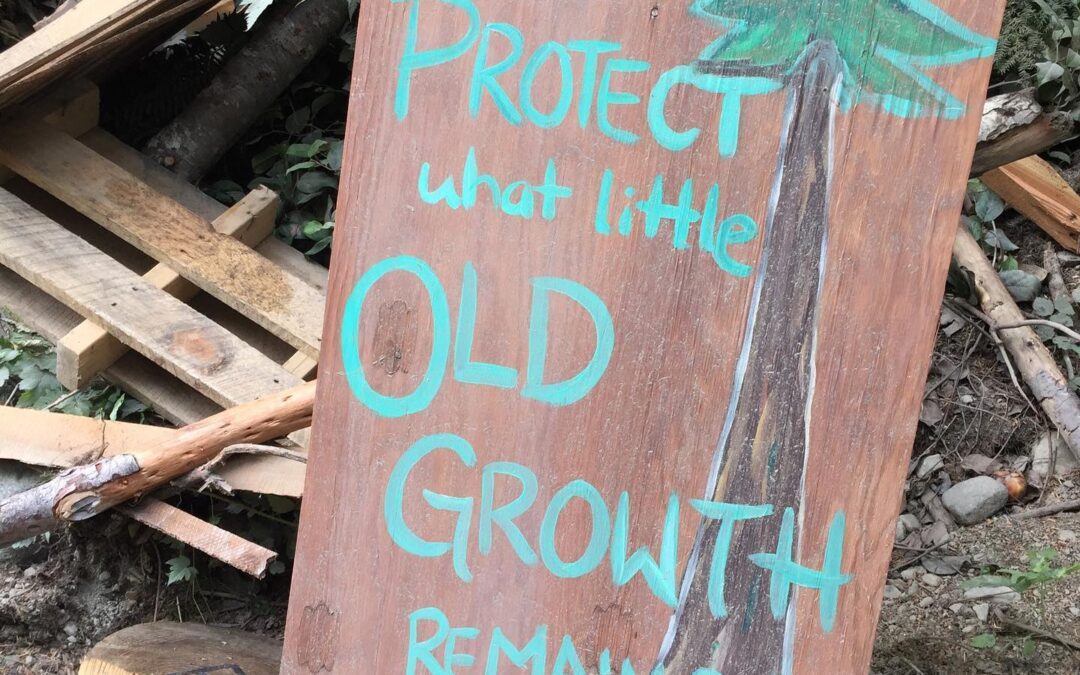 PROTECT
what little
OLD
GROWTH
REMAINS